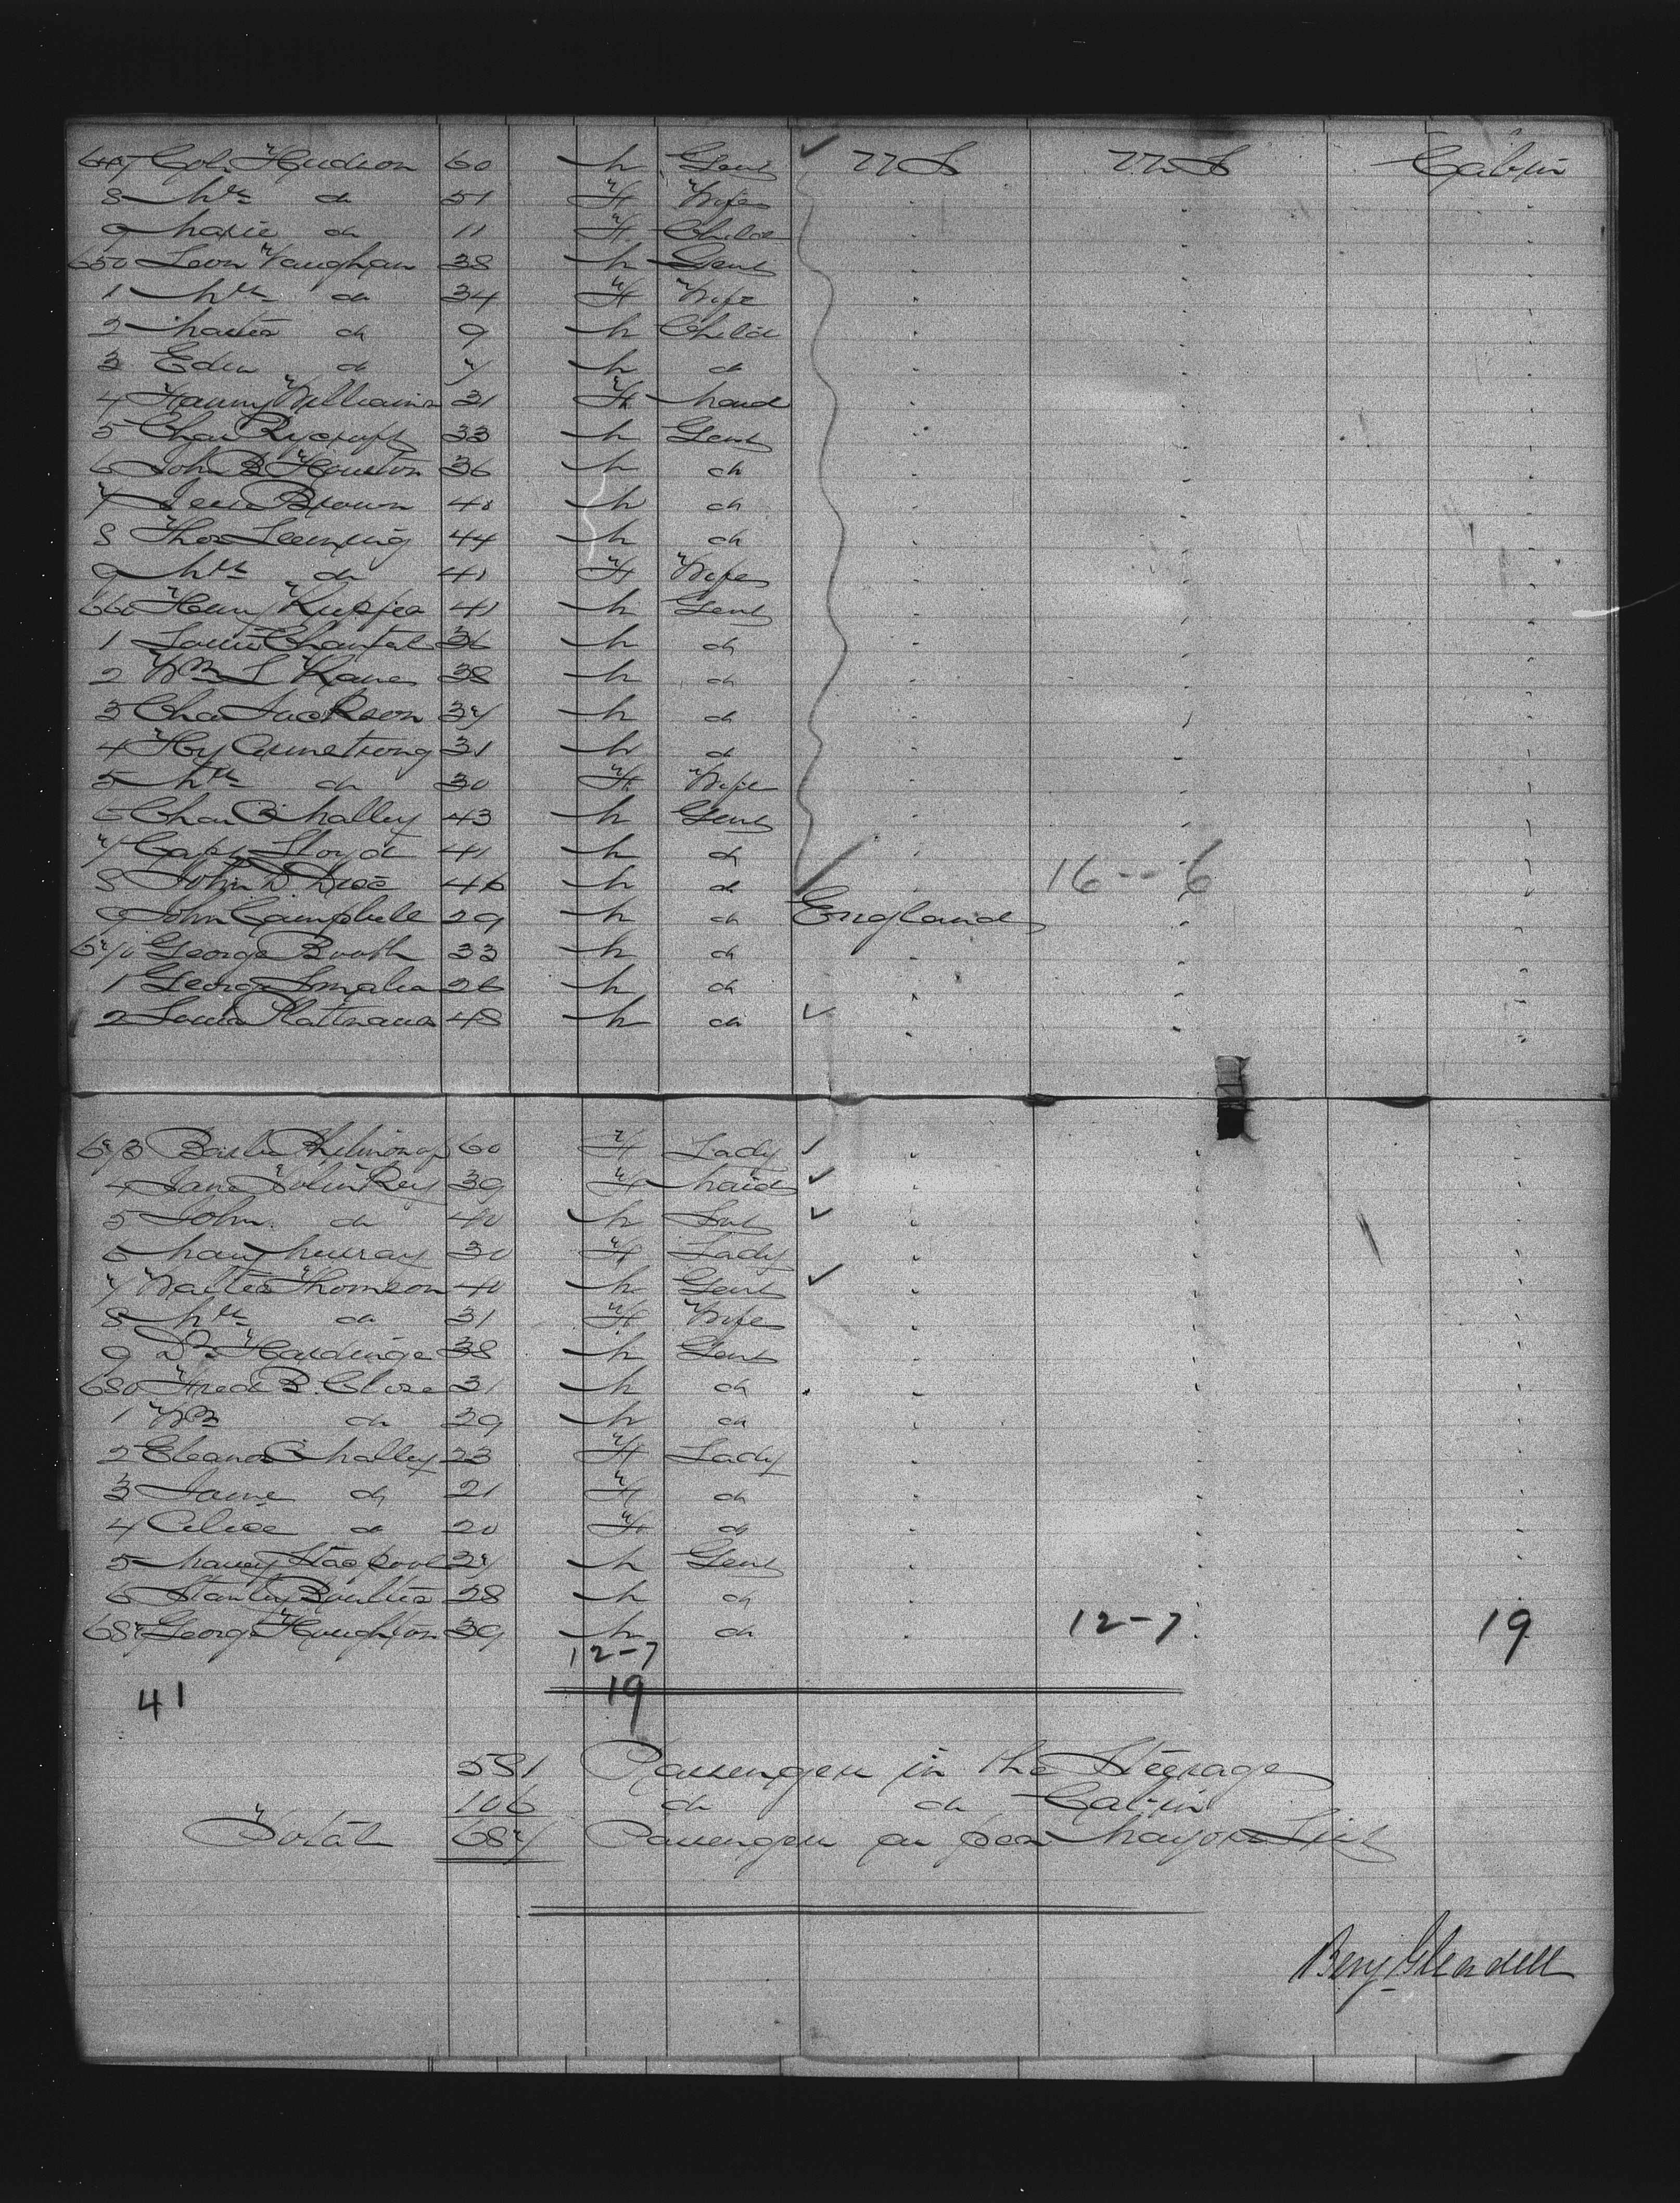 647 Col. Hudson 60 M Gent U S U S Cabin
8 Mrs do 51 F Wife
9 Marie do 11 F Child
650 Leon Vaughan 38 M Gent
1 Mrs do 34 F Wife
2 Master do 9 M Child
3 Eden do 7 M do
4 Fanny Williams 31 F Maid
5 Chas Rycroft 33 M Gent
6 Joh B Houston 36 M do
7 Brown 41 M do
8 Thos Leeming 44 M do
9 Mrs do 41 F Wife
660 Henry Kupfer 41 M Gent
1 Louis Chantal 36 M do
2 Wm L Kane 38 M do
3 Chas Jackson 37 M do
4 Hy Armstrong 31 M do
5 Mrs do 30 F Wife
6 Chas B Malley 43 M Gent
7 Capt Lloyd 41 M do
8 John D 46 M do 16--6
9 John Campbell 29 M do England
670 George Booth 33 M do
1 George 26 M do
2 Louis Plattnauer 48 M do
673 60 F Lady
4 Jane 39 F Maid
5 John do 40 M
6 Mary Murray 30 F Lady
7 Walter Thomson 40 M Gent
8 Mrs do 31 F Wife
9 Dr Hardinge 38 M Gent
680 Fred B. Close 31 M do
1 Wm do 29 M do
2 Eleanor Malley 23 F Lady
3 Jane do 21 F do
4 Alice do 20 F do
5 Stacpool 27 M Gent
6 Stanley Boulter 28 M do
687 George Houghton 39 M do 12-7 19
12-7
41 19
581 Passengers in the Steerage
106 do do Cabin
Total 687 Passengers as per Mayors List
Benj Gleadell